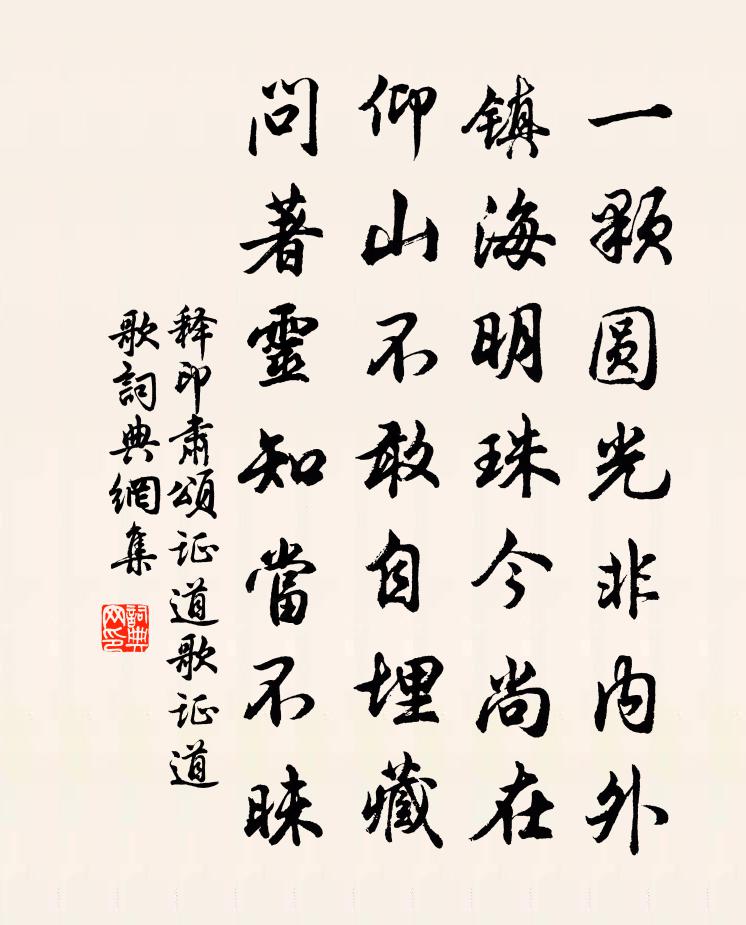 一顆圆光非内外
镇海明珠今尚在
仰山不敢自埋藏
問著靈知當不昧
释印肃頌证道歌证道
歌詞典網集
詞典网印